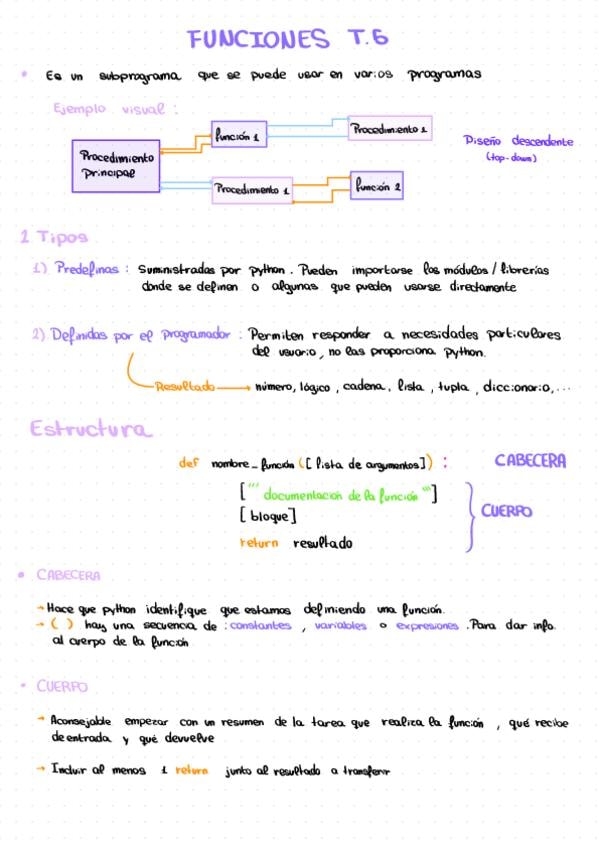 FUNCIONES T.6
• Es un subprograma que se puede usar en varios programas
Ejemplo visual :
función 1
Procedimiento 1
Procedimiento
principal
Diseño descendente
(top-down)
Procedimiento 1
función 2
2 Tipos
1) Predefinas : Suministradas por python. Pueden importarse los módulos / librerías
donde se definen o algunas que pueden usarse directamente
2) Definidas por el programador : Permiten responder a necesidades particulares
del usuario, no las proporciona Python.
Resultado → número, lógico, cadena, lista, tupla, diccionario,...
Estructura
def nombre_función ([ lista de argumentos]) : CABECERA
[''' documentacion de la función ''']
[ bloque]
CUERPO
return resultado
• CABECERA
→ Hace que python identifique que estamos definiendo una función.
→ ( ) hay una secuencia de : constantes , variables o expresiones . Para dar info.
al cuerpo de la función
• CUERPO
→ Aconsejable empezar con un resumen de la tarea que realiza la función , qué recibe
de entrada y qué devuelve
→ Incluir al menos 1 return junto al resultado a transferir